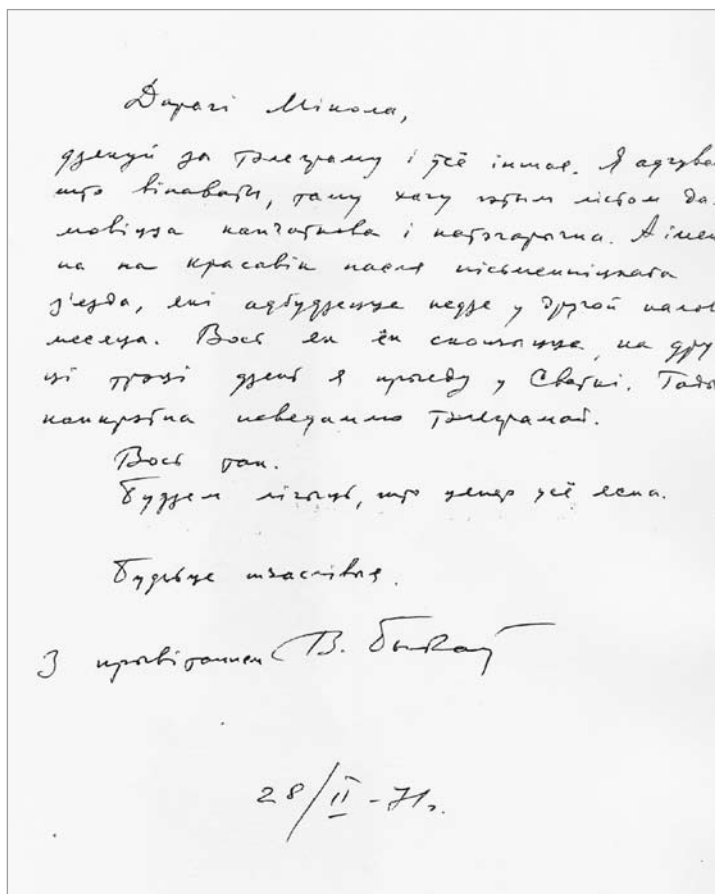 Дарагі Мікола,
дзякуй за тэлеграму і ўсё іншае. Я адчува
што вінаваты, таму хачу гэтым лістом да-
мовіцца канчаткова і катэгарычна. А імен
на на красавік пасля пісьменніцкага
з'езда, які адбудзецца недзе у другой палов
месяца. Вось як ён скончыцца, на дру
ці трэці дзень я прыеду у Сваткі. Тады
канкрэтна паведамлю тэлеграмай.
Вось так.
Будзем лічыць, што цяпер усё ясна.
Будзьце шчаслівыя.
З прывітаннем В. Быкаў
28/II - 71 г.